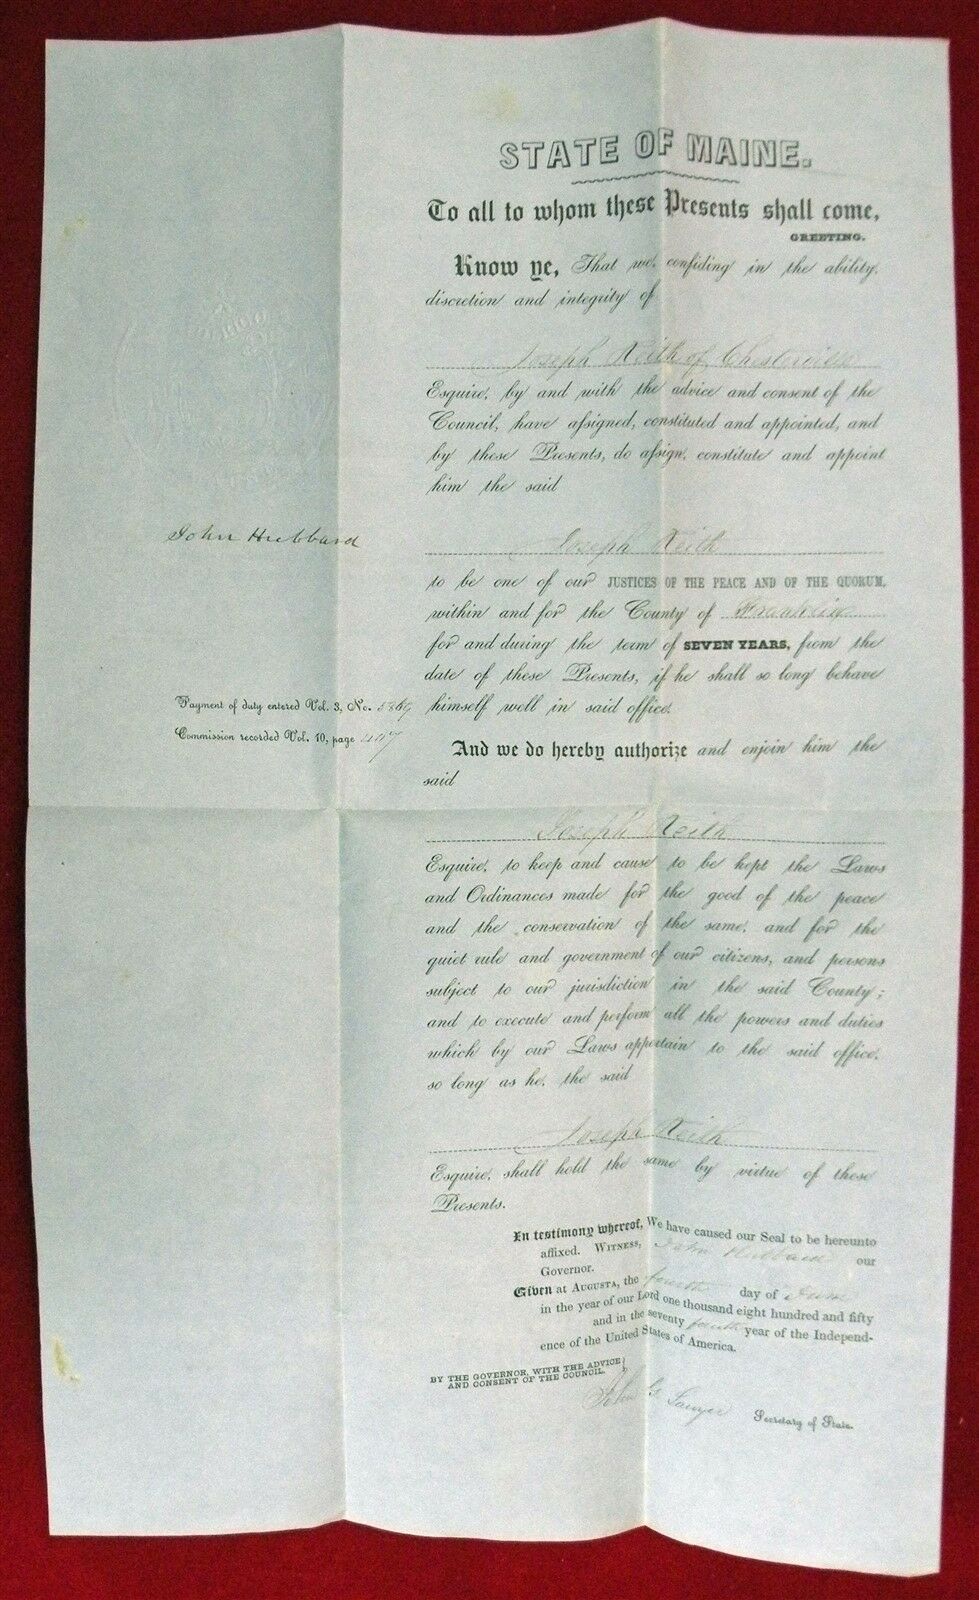 STATE OF MAINE.
To all to whom these Presents shall come,
GREETING.
Know ye, That we, confiding in the ability,
discretion and integrity of
Joseph Keith of Chesterville
Esquire, by and with the advice and consent of the
Council, have assigned, constituted and appointed, and
by these Presents, do assign, constitute and appoint
him the said
John Hubbard
Joseph Keith
to be one of our JUSTICES OF THE PEACE AND OF THE QUORUM,
within and for the County of Franklin
for and during the term of SEVEN YEARS, from the
date of these Presents, if he shall so long behave
himself well in said office.
Payment of duty entered Vol. 3, No.
Commission recorded Vol. 10, page
And we do hereby authorize and enjoin him the
said
Joseph Keith
Esquire, to keep and cause to be kept the Laws
and Ordinances made for the good of the peace
and the conservation of the same, and for the
quiet rule and government of our citizens, and persons
subject to our jurisdiction in the said County;
and to execute and perform all the powers and duties
which by our Laws appertain to the said office,
so long as he, the said
Joseph Keith
Esquire, shall hold the same by virtue of these
Presents.
In testimony whereof, We have caused our Seal to be hereunto
affixed. WITNESS, John Hubbard our
Governor.
Given at AUGUSTA, the fourth day of June
in the year of our Lord one thousand eight hundred and fifty
and in the seventy fourth year of the Independ-
ence of the United States of America.
BY THE GOVERNOR, WITH THE ADVICE
AND CONSENT OF THE COUNCIL.
John G Sawyer Secretary of State.